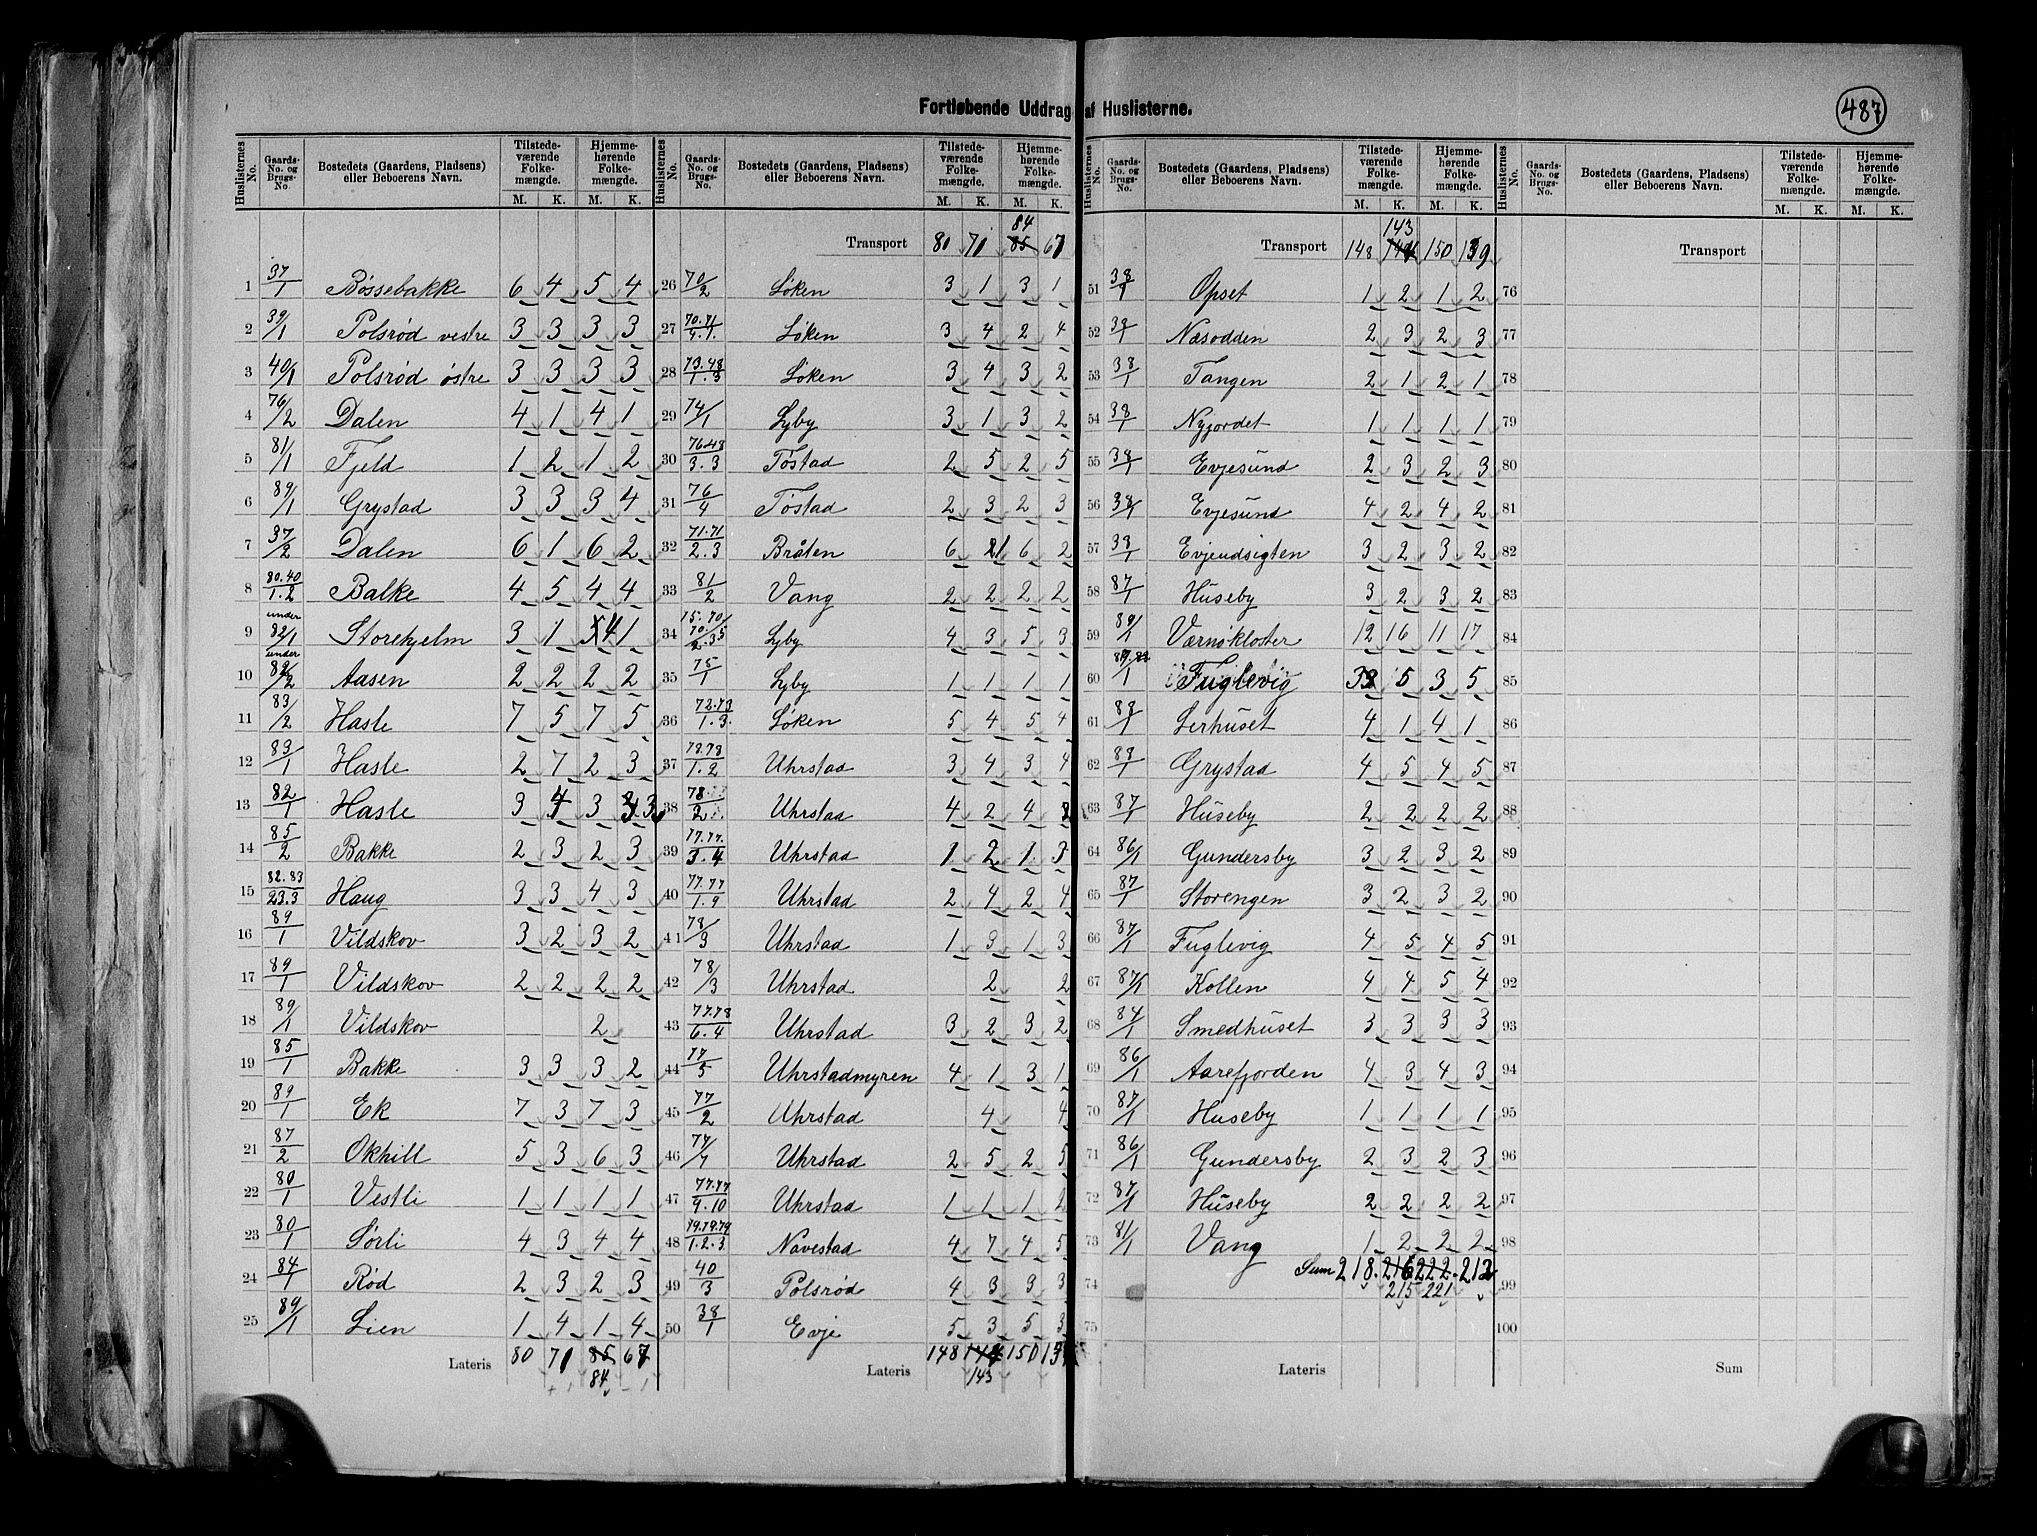 487
Fortløbende Uddrag af Huslisterne.
Huslisternes No. | Gaards-No. og Brugs-No. | Bostedets (Gaardens, Pladsens) eller Beboerens Navn. | Tilstedeværende Folkemængde. M. K. | Hjemmehørende Folkemængde. M. K.
1 37/1 Bøssebakke 6 4 5 4
2 39/1 Polsrød vestre 3 3 3 3
3 40/1 Polsrød østre 3 3 3 3
4 76/2 Dalen 4 1 4 1
5 81/1 Fjeld 1 2 1 2
6 89/1 Grystad 3 3 3 4
7 37/2 Dalen 6 1 6 2
8 80.40/1.2 Balke 4 5 4 4
9 under 82/1 Storehjelm 3 1 4 1
10 under 82/2 Aasen 2 2 2 2
11 83/2 Hasle 7 5 7 5
12 83/1 Hasle 2 7 2 3
13 82/1 Hasle 3 4 3 3
14 85/2 Bakke 2 3 2 3
15 82.83/23.3 Haug 3 3 4 3
16 89/1 Vildskov 3 2 3 2
17 89/1 Vildskov 2 2 2 2
18 89/1 Vildskov 2
19 85/1 Bakke 3 3 3 2
20 89/1 Ek 7 3 7 3
21 87/2 Okhill 5 3 6 3
22 80/1 Vestli 1 1 1 1
23 80/1 Sørli 4 3 4 4
24 84/1 Rød 2 3 2 3
25 89/1 Lien 1 4 1 4
Lateris 80 71 85 67
84
Huslisternes No. | Gaards-No. og Brugs-No. | Bostedets (Gaardens, Pladsens) eller Beboerens Navn. | Tilstedeværende Folkemængde. M. K. | Hjemmehørende Folkemængde. M. K.
84
Transport 80 71 85 67
26 70/2 Løken 3 1 3 1
27 70.71/4.1. Løken 3 4 2 4
28 73.48/1.3 Løken 3 4 3 2
29 74/1 Lyby 3 1 3 2
30 76.48/3.3 Tøstad 2 5 2 5
31 76/4 Tøstad 2 3 2 3
32 71.71/2.3 Bråten 6 1 6 2
33 81/2 Vang 2 2 2 2
34 Lyby 4 3 5 3
35 75/1 Lyby 1 1 1 1
36 72.73/1.3. Løken 5 4 5 4
37 78.78/1.2 Uhrstad 3 4 3 4
38 78/2 Uhrstad 4 2 4 2
39 77.77./3.4 Uhrstad 1 2 1 3
40 77.77/1.9 Uhrstad 2 4 2 4
41 78/3 Uhrstad 1 3 1 3
42 78/3 Uhrstad 2 2
43 77.78/6.4 Uhrstad 3 2 3 2
44 77/5 Uhrstadmyren 4 1 3 1
45 77/2 Uhrstad 4 4
46 77/7 Uhrstad 2 5 2 5
47 77.77/9.10 Uhrstad 1 1 1 2
48 79.79.79/1.2.3. Navestad 4 7 4 5
49 40/3 Polsrød 4 3 3 3
50 38/1 Evje 5 3 5 3
Lateris 148 144 150 139
143
Huslisternes No. | Gaards-No. og Brugs-No. | Bostedets (Gaardens, Pladsens) eller Beboerens Navn. | Tilstedeværende Folkemængde. M. K. | Hjemmehørende Folkemængde. M. K.
143
Transport 148 144 150 139
51 38/1 Opset 1 2 1 2
52 38/1 Næsodden 2 3 2 3
53 38/1 Tangen 2 1 2 1
54 38/1 Nyjordet 1 1 1 1
55 38/1 Evjesund 2 3 2 3
56 38/1 Evjesund 4 2 4 2
57 38/1 Evjeudsigten 3 2 3 2
58 87/1 Huseby 3 2 3 2
59 89/1 Værnøkloster 12 16 11 17
60 Fuglevig 3 5 3 5
61 88/1 Lerhuset 4 1 4 1
62 88/1 Grystad 4 5 4 5
63 87/1 Huseby 2 2 2 2
64 86/1 Gundersby 3 2 3 2
65 87/1 Storengen 3 2 3 2
66 87/1 Fuglevig 4 5 4 5
67 87/1 Kollen 4 4 5 4
68 84/1 Smedhuset 3 3 3 3
69 86/1 Aarefjorden 4 3 4 3
70 87/1 Huseby 1 1 1 1
71 86/1 Gundersby 2 3 2 3
72 87/1 Huseby 2 2 2 2
73 81/1 Vang 1 2 2 2
74 Sum 218. 216 222. 212
215 221
75
Lateris
Huslisternes No. | Gaards-No. og Brugs-No. | Bostedets (Gaardens, Pladsens) eller Beboerens Navn. | Tilstedeværende Folkemængde. M. K. | Hjemmehørende Folkemængde. M. K.
Transport
76
77
78
79
80
81
82
83
84
85
86
87
88
89
90
91
92
93
94
95
96
97
98
99
100
Sum